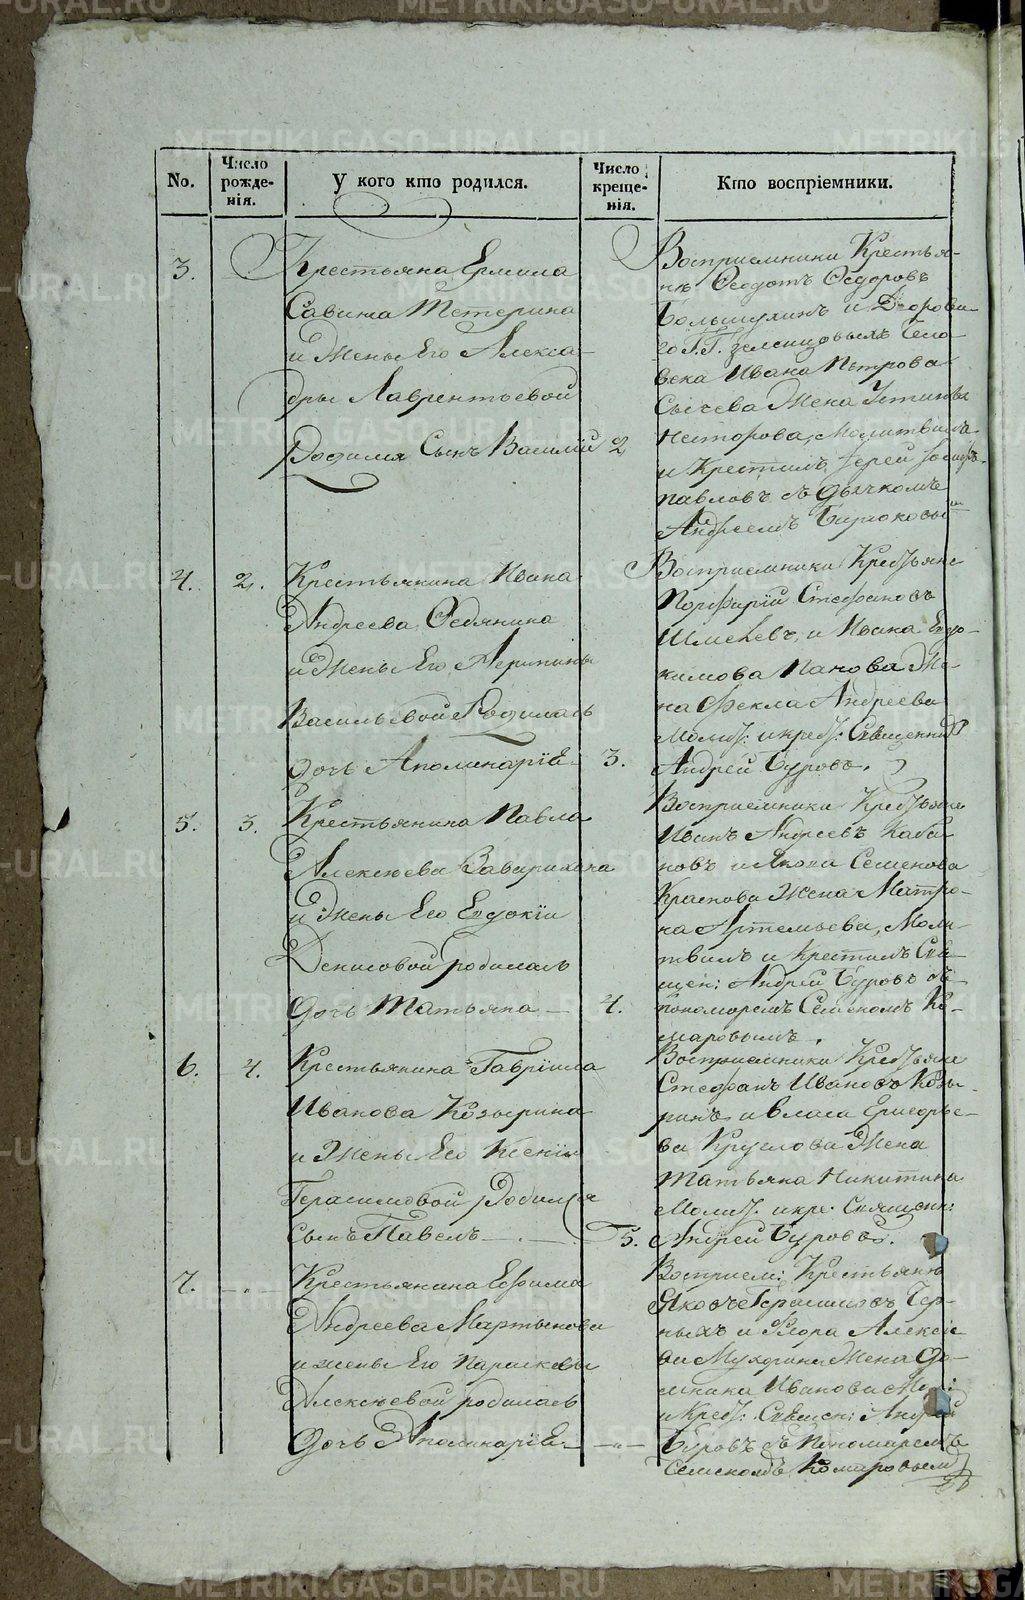 No.
Число рожде-нія.
У кого кто родился.
Число креще-нія.
Кто воспріемники.
3.
Крестьяна Ермила
Савина Тетерина
и Жены Его Алекса-
дры Лаврентьевой
Родился Сынъ Василій
2
Восприемники Крестья-
нѣ Ѳедотъ Ѳедоровъ
и Дворова-
го Г.Г. зеленцовыхъ Чело-
века Ивана Петрова
Сычева Жена Устинья
Несторова, Молитвилъ
и Крестилъ Іерей Іосифъ
павловъ съ дьячкомъ
Андреемъ Бирюковы
4.
2.
Крестьянина Ивана
Андреева Ѳедянина
и Жены Его Агрипины
Васильевой Родилась
дочь Аполинаріѣ
3.
Восприемники Крестьяне
Порфирій Стефановъ
Шмелевъ, и Ивана Евдо-
кимова Панова Же-
на Фекла Андреева
Молит: и крест: Священник
Андрей Буровъ.
5.
3.
Крестьянина Павла
Алексѣева Заварихина
и Жены Его Евдокіи
Денисовой родилась
дочь Татьяна
4.
Восприемники Крестьяне
Иванъ Андреевъ Каба-
новъ и Якова Семенова
Краснова Жена Матро-
на Артемьева, Моли-
твилъ и Крестилъ Свя-
щен: Андрей Буровъ съ
пономоремъ Семеномъ Ко-
маровымъ.
6.
4.
Крестьянина Гавріила
Иванова Козырина
и Жены Его Ксеніи
Герасимовой Родился
сынъ Павелъ
5.
Восприемники Крестьяне
Стефанъ Ивановъ Козы-
ринъ и Власа Григорье-
ва Круглова Жена
Татьяна Никитина
Молит: и кре: Священ:
Андрей Буровъ.
7.
Крестьянина Ефима
Андреева Мартынова
и жены Его Параскевы
Алексѣевой родилась
дочь Аполинаріѣ
Восприем: Крестьянѣ
Яковъ Герасимовъ Чер-
ныхъ и Флора Алексѣе
ва Мухорина Жена До-
мника Иванова
и Крест: Священ: Андрей
Буровъ съ Пономаремъ
Семеномъ Комаровым
METRIKI.GASO-URAL.RU